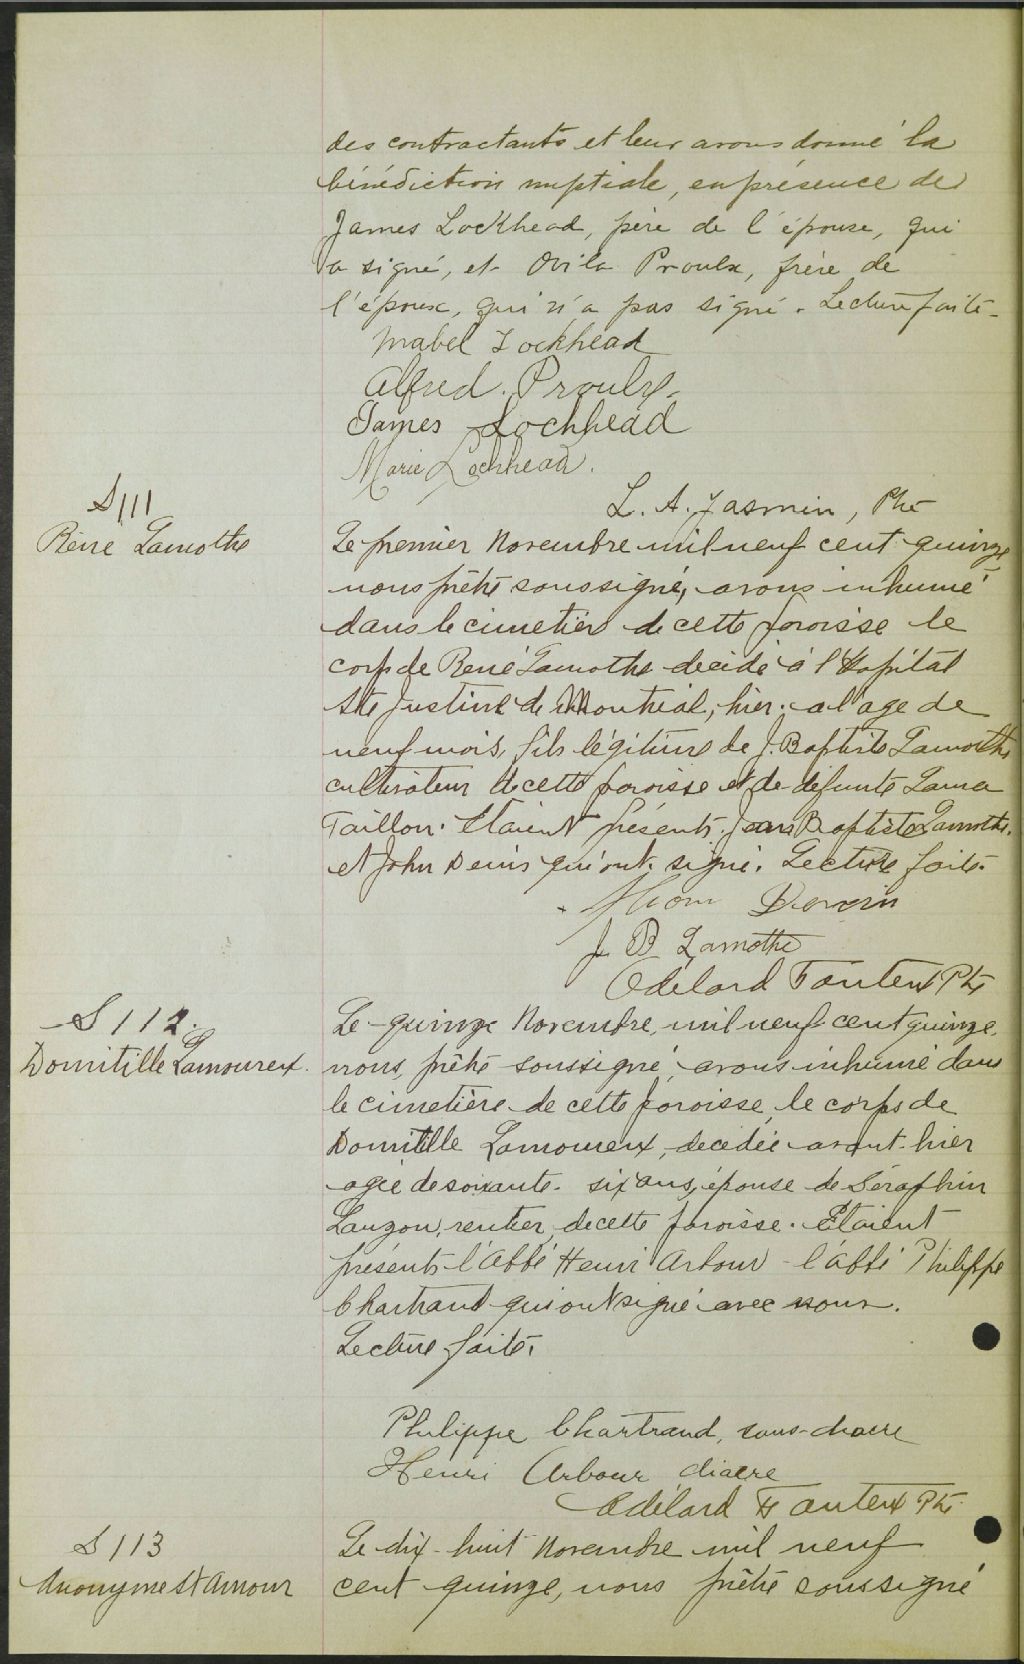 des contractants et leur avons donné la
bénédiction nuptiale, en présence de
James Lockhead, père de l'épouse, qui
a signé, et Ovila Proulx, frère de
l'époux, qui n'a pas signé. Lecture faite.
Mabel Lockhead
Alfred Proulx
James Lochhead
Marie Lochhead.
L. A. Jasmin, Ptre
S111
René Lamothe
Le premier Novembre mil neuf cent quinze
nous prêtre soussigné, avons inhumé
dans le cimetière de cette paroisse le
corps de René Lamothe décédé à l'Hopital
Ste Justine de Montréal, hier, a l'age de
neuf mois, fils légitime de J. Baptiste Lamothe
cultivateur de cette paroisse et de défunte Laura
Taillon. Etaient présents Jean Baptiste Lamothe.
et John Denis qui ont signé. Lecture faite.
J. B Lamothe
Adélard Fauteux Ptr
S112.
Domitille Lamoureux.
Le quinze Novembre, mil neuf cent quinze,
nous, prêtre soussigné, avons inhumé dans
le cimetière de cette paroisse, le corps de
Domitille Lamoureux, décédée avant-hier
agée de soixante-six ans, épouse de Séraphin
Lauzon, rentier, de cette paroisse. Etaient
présents l'Abbé Henri Arbour l'abbé Philippe
Chartrand qui ont signé avec nous.
Lecture faite.
Philippe Chartrand, sous-diacre
Henri Arbour diacre
Adélard Fauteux Ptr
S113
Anonyme St Amour
Le dix-huit Novembre mil neuf
cent quinze, nous prêtre soussigné